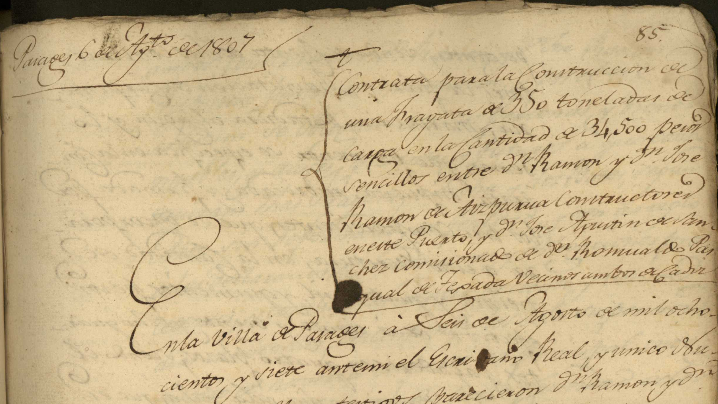 85.
Pasages 6 de Agto. de 1807
Contrata para la Construccion de
una Fragata de 350 toneladas de
carga en la Cantidad de 34,500 pesos
sencillos entre dn. Ramon y dn. Jose
Ramon de Aizpurua Constructores
en este Puerto, y dn. Jose Agustin de San
chez comisionado de dn. Romualdo Pas
qual de Texada Vecinos ambos de Cadiz
En la Villa de Pasages à Seis de Agosto de mil ocho-
cientos, y siete ante mi el Escribano Real, y unico
testigos parecieron dn. Ramon y dn.